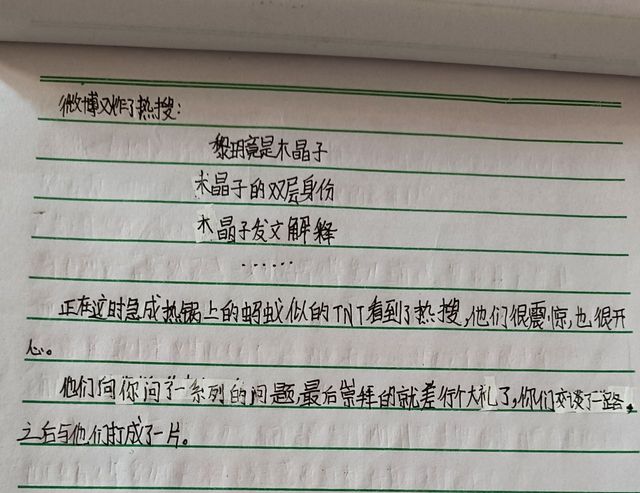 微博又炸了热搜:
黎玥竟是木晶子
木晶子的双层身份
木晶子发文解释
......
正在这时急成热锅上的蚂蚁似的TNT看到了热搜,他们很震惊,也很开
心。
他们向你问了一系列的问题,最后崇拜的就差行个大礼了,你们交谈了一路,
之后与他们打成了一片。